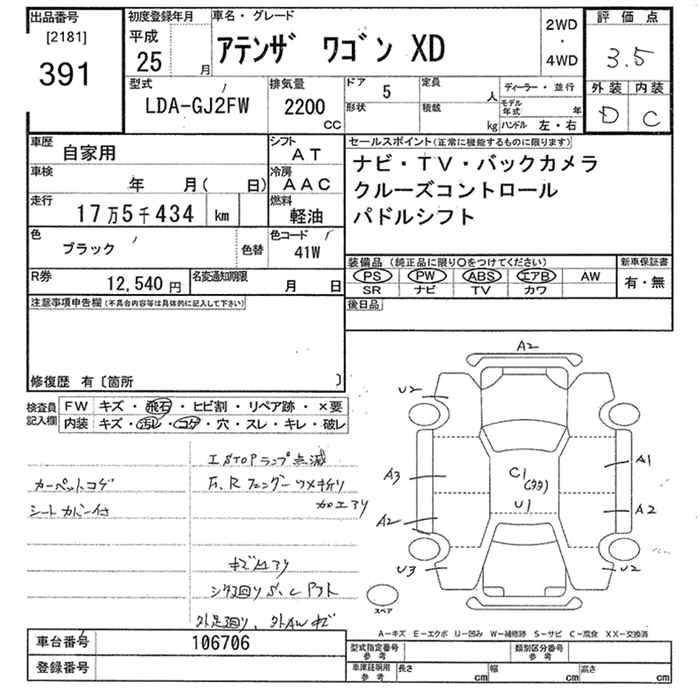 出品番号 初度登録年月 車名・グレード 評価点
[2181] 平成
391 25 月 アテンザ ワゴン XD 2WD・4WD 3.5
型式 排気量 ドア 5 定員 人 ディーラー・並行 外装 内装
LDA-GJ2FW 2200 CC 形状 積載 kg モデル年式 年 D C
ハンドル 左・右
車歴 自家用 シフト AT セールスポイント(正常に機能するものに限ります)
車検 年 月( 日) 冷房 AAC ナビ・TV・バックカメラ
走行 17万5千434 km 燃料 軽油 クルーズコントロール
パドルシフト
色 ブラック 色替 色コード 41W
装備品 (純正品に限り○をつけてください) 新車保証書
R券 12,540円 名変通知期限 月 日 PS PW ABS エアB AW 有・無
SR ナビ TV カワ
注意事項申告欄(不具合内容等は具体的に記入して下さい) 後日品
修復歴 有〔箇所 〕
検査員記入欄 FW キズ・飛石・ヒビ割・リペア跡・×要
内装 キズ・汚レ・コゲ・穴・スレ・キレ・破レ
ISTOPランプ点滅
カーペットコゲ F、Rフェンダーツメキリ
シートカバー付 加工アリ
キズA1アリ
シタ廻りS、Cアト
外足廻り、外AWキズ
A2
U2
A3 C1 A1
U1
A2 A2
U3 U2
スペア
A-キズ E-エクボ U-凹み W-補修跡 S-サビ C-腐食 XX-交換済
車台番号 106706 型式指定番号 参考 類別区分番号 参考
登録番号 車庫証明用 参考 長さ cm 幅 cm 高さ cm